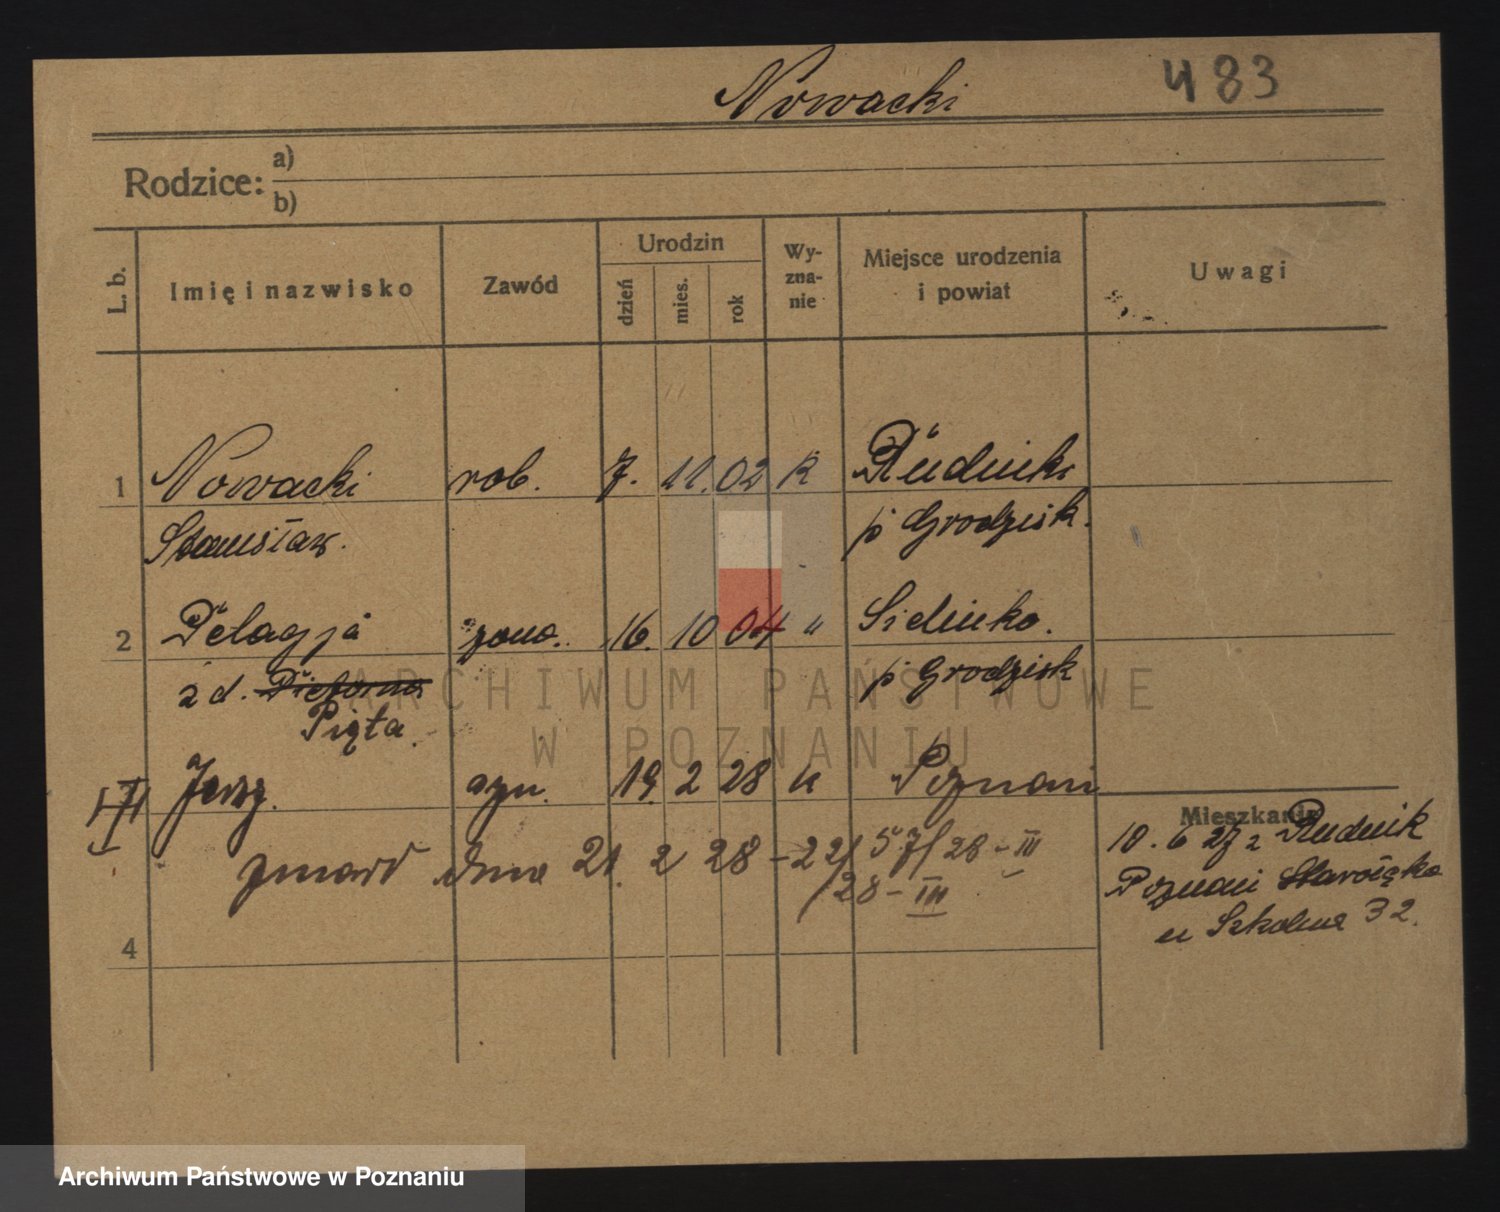 Nowacki 483
Rodzice: a)
b)
L. b. Imię i nazwisko Zawód Urodzin dzień mies. rok Wy-zna-nie Miejsce urodzenia i powiat Uwagi
1 Nowacki rob. 7. 11. 02 K Rudniki
Stanisław. p Grodzisk.
2 Pelagja żona. 16. 10 04 " Sielinko.
z d. p Grodzisk
Piąta
III Jerzy. syn. 19. 2 28 k Poznań
Mieszkanie
zmarł dnia 21. 2 28 - 22/ 57/28 - III
28 - III
10. 6 27 z Rudnik
Poznań Starołęka
u Szkolna 32.
4
ARCHIWUM PAŃSTWOWE
W POZNANIU
Archiwum Państwowe w Poznaniu